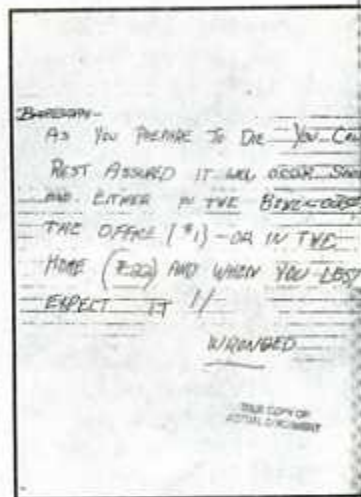 AS YOU PREPARE TO DIE YOU CA
REST ASSURED IT WILL OCCUR
AND EITHER IN THE
THE OFFICE (#1) - OR IN THE
HOME (#22) AND WHEN YOU
EXPECT IT !!
WRONGED
TRUE COPY OF
ACTUAL DOCUMENT